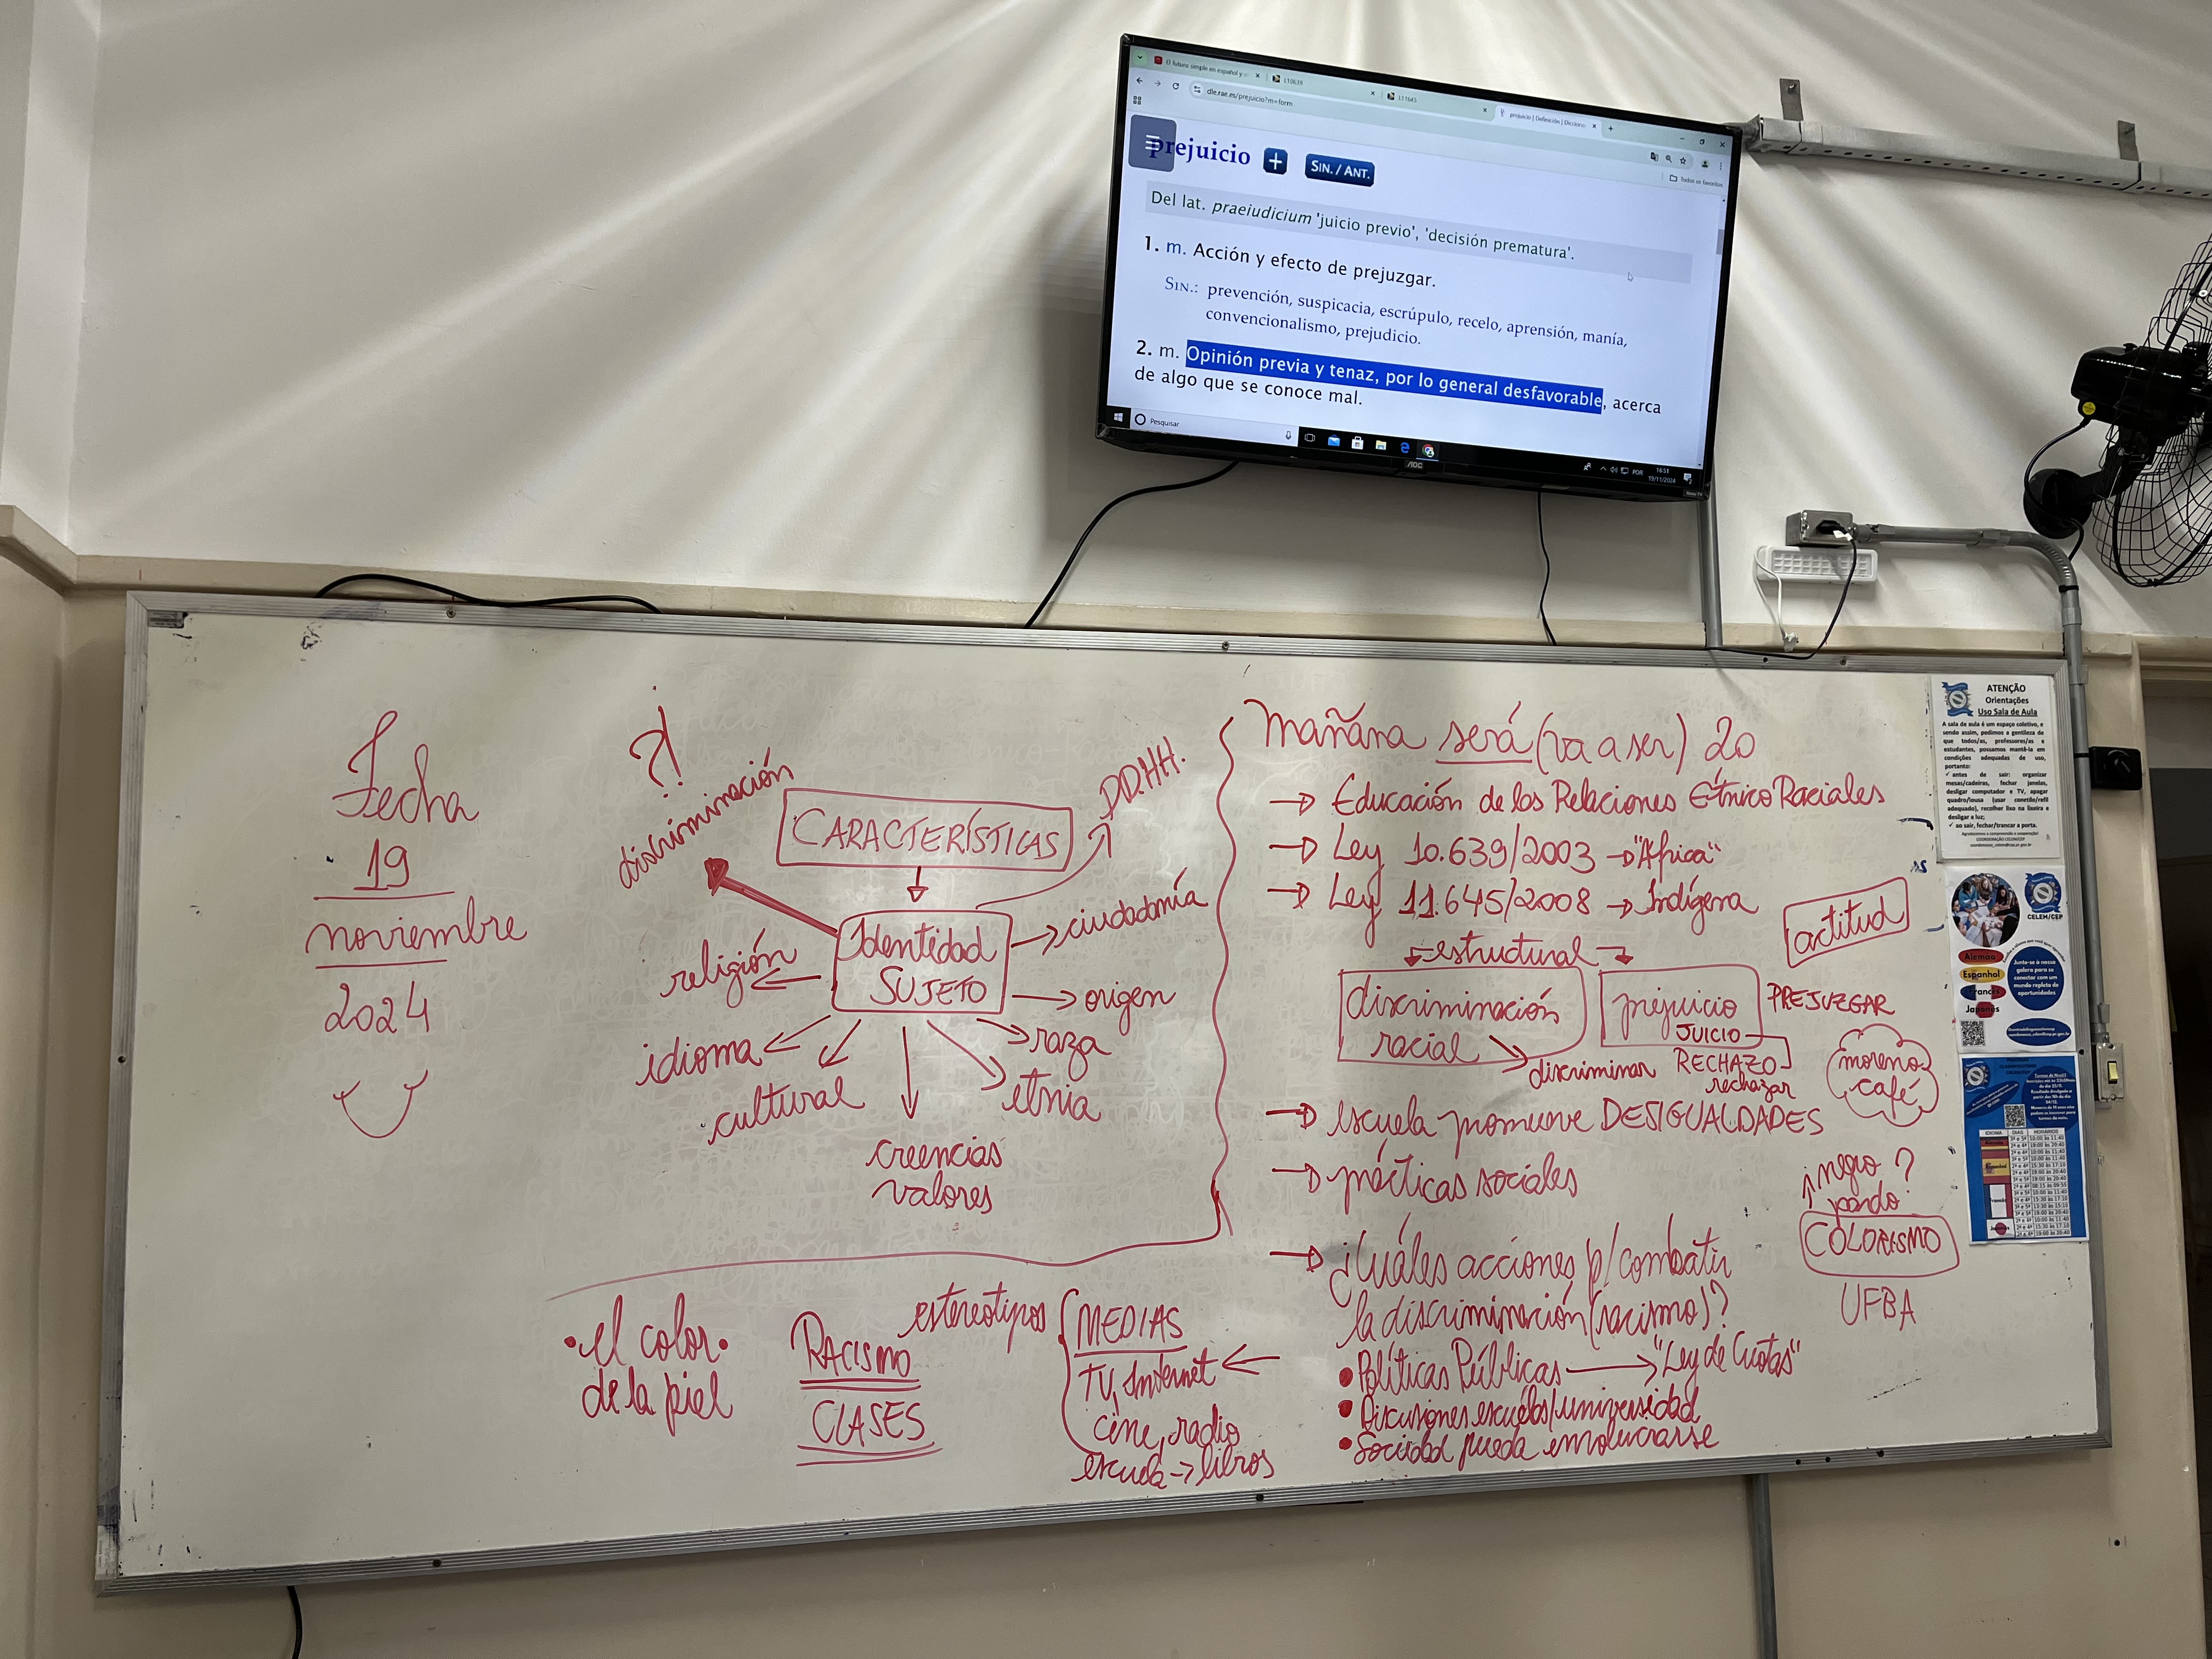 El futuro simple en español y
L10639
L11645
prejuicio | Definición | Dicciona
dle.rae.es/prejuicio?m=form
Todos os favoritos
prejuicio + SIN. / ANT.
Del lat. praeiudicium 'juicio previo', 'decisión prematura'.
1. m. Acción y efecto de prejuzgar.
SIN.: prevención, suspicacia, escrúpulo, recelo, aprensión, manía,
convencionalismo, prejudicio.
2. m. Opinión previa y tenaz, por lo general desfavorable, acerca
de algo que se conoce mal.
Pesquisar
POR
16:51
19/11/2024
AOC
Fecha
19
noviembre
2024
?!
discriminación
CARACTERÍSTICAS
DD.HH.
Identidad
SUJETO
ciudadanía
religión
origen
idioma
raza
cultural
etnia
creencias
valores
• el color •
de la piel
RACISMO
CLASES
estereotipos
MEDIAS
TV, Internet
cine, radio
escuela → libros
Mañana será (va a ser) 20
→ Educación de las Relaciones Étnico Raciales
→ Ley 10.639/2003 → "África"
→ Ley 11.645/2008 → Indígena
estructural
actitud
discriminación
racial
discriminar
prejuicio
JUICIO
PREJUZGAR
RECHAZO
rechazar
moreno
café
→ escuela promueve DESIGUALDADES
→ prácticas sociales
negro ?
pardo
COLORISMO
UFBA
→ ¿Cuáles acciones p/ combatir
la discriminación (racismo)?
• Políticas Públicas → "Ley de Cuotas"
• Discusiones escuelas/universidad
• Sociedad pueda envolucrarse
ATENÇÃO
Orientações
Uso Sala de Aula
A sala de aula é um espaço coletivo, e
sendo assim, pedimos a gentileza de
que todos/as, professores/as e
estudantes, possamos mantê-la em
condições adequadas de uso,
portanto:
✓ antes de sair: organizar
mesas/cadeiras, fechar janelas,
desligar computador e TV, apagar
quadro/lousa (usar conetão/refil
adequado), recolher lixo na lixeira e
desligar a luz;
✓ ao sair, fechar/trancar a porta.
CELEM/CEP
Alemão
Espanhol
Francês
Japonês
Junte-se à nossa
galera para se
conectar com um
mundo repleto de
oportunidades
IDIOMA DIAS HORÁRIOS